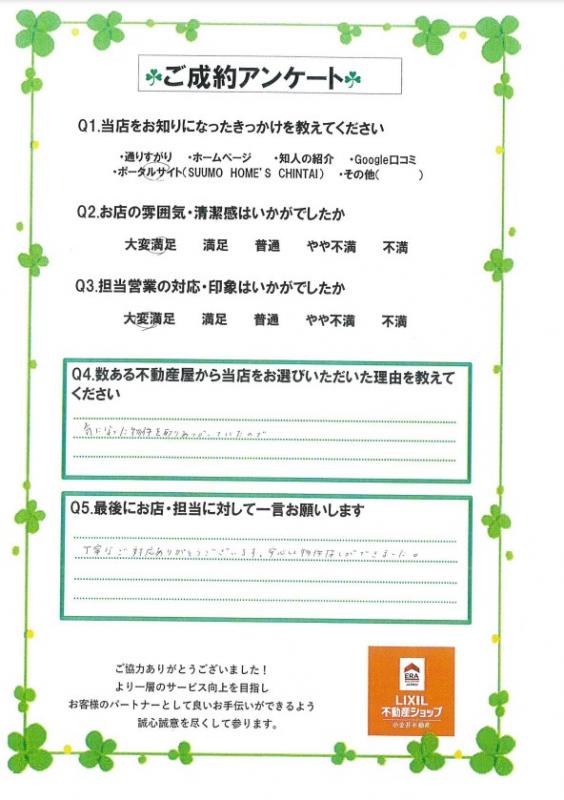 ご成約アンケート
Q1.当店をお知りになったきっかけを教えてください
・通りすがり ・ホームページ ・知人の紹介 ・Google口コミ
・ポータルサイト(SUUMO HOME'S CHINTAI) ・その他( )
Q2.お店の雰囲気・清潔感はいかがでしたか
大変満足 満足 普通 やや不満 不満
Q3.担当営業の対応・印象はいかがでしたか
大変満足 満足 普通 やや不満 不満
Q4.数ある不動産屋から当店をお選びいただいた理由を教えて
ください
気になった物件を取りあつかっていたので
Q5.最後にお店・担当に対して一言お願いします
丁寧なご対応ありがとうございます。安心して物件探しができました。
ご協力ありがとうございました！
より一層のサービス向上を目指し
お客様のパートナーとして良いお手伝いができるよう
誠心誠意を尽くして参ります。
ERA
LIXIL
不動産ショップ
小金井不動産